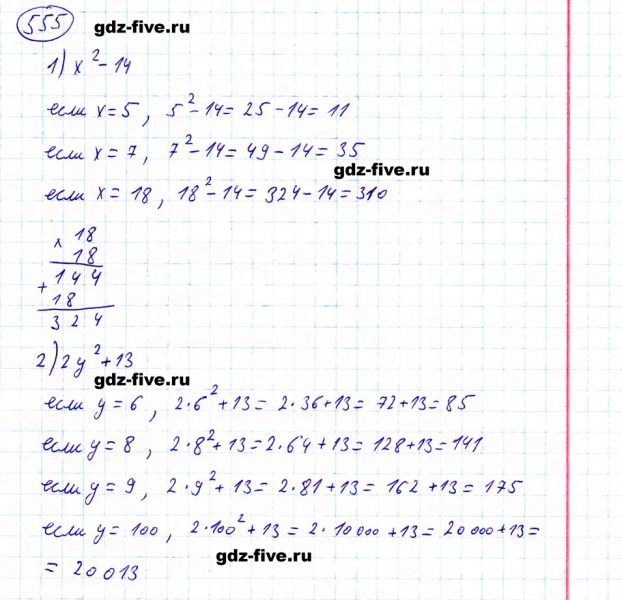 555 gdz-five.ru
1) x² - 14
если x = 5, 5² - 14 = 25 - 14 = 11
если x = 7, 7² - 14 = 49 - 14 = 35
gdz-five.ru
если x = 18, 18² - 14 = 324 - 14 = 310
x 18
18
+ 144
18
324
2) 2y² + 13
gdz-five.ru
если y = 6, 2·6² + 13 = 2·36 + 13 = 72 + 13 = 85
если y = 8, 2·8² + 13 = 2·64 + 13 = 128 + 13 = 141
если y = 9, 2·9² + 13 = 2·81 + 13 = 162 + 13 = 175
если y = 100, 2·100² + 13 = 2·10000 + 13 = 20000 + 13 =
gdz-five.ru
= 20013